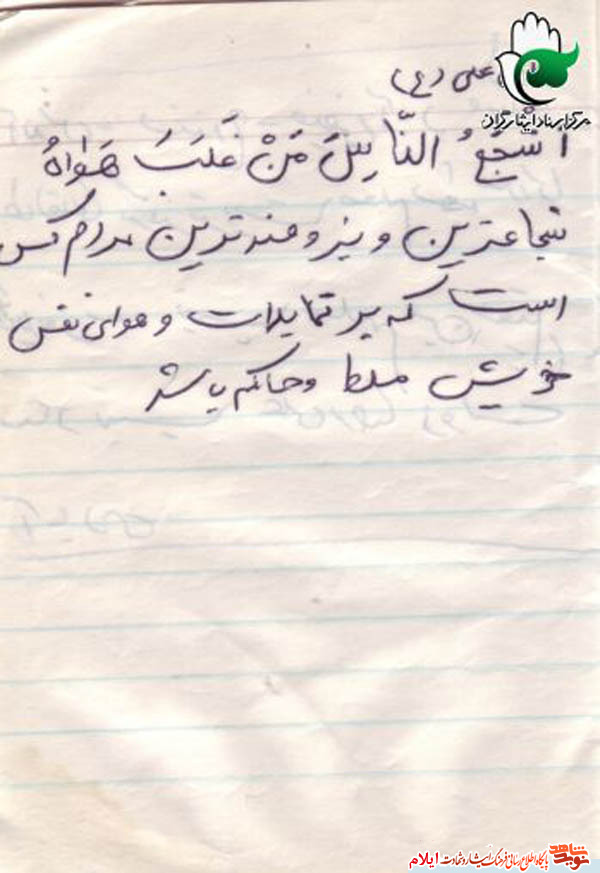 علی (ع)
مرکز اسناد ایثارگران
اَشجَعُ النّاسِ مَنْ غَلَبَ هَواهُ
شجاعترین و نیرومندترین مردم کس
است که بر تمایلات و هوای نفس
خویش مسلط و حاکم باشد
نوید شاهد پایگاه اطلاع رسانی فرهنگ ایثار و شهادت ایلام